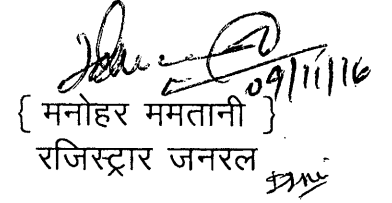 09/11/16
{ मनोहर ममतानी }
रजिस्ट्रार जनरल